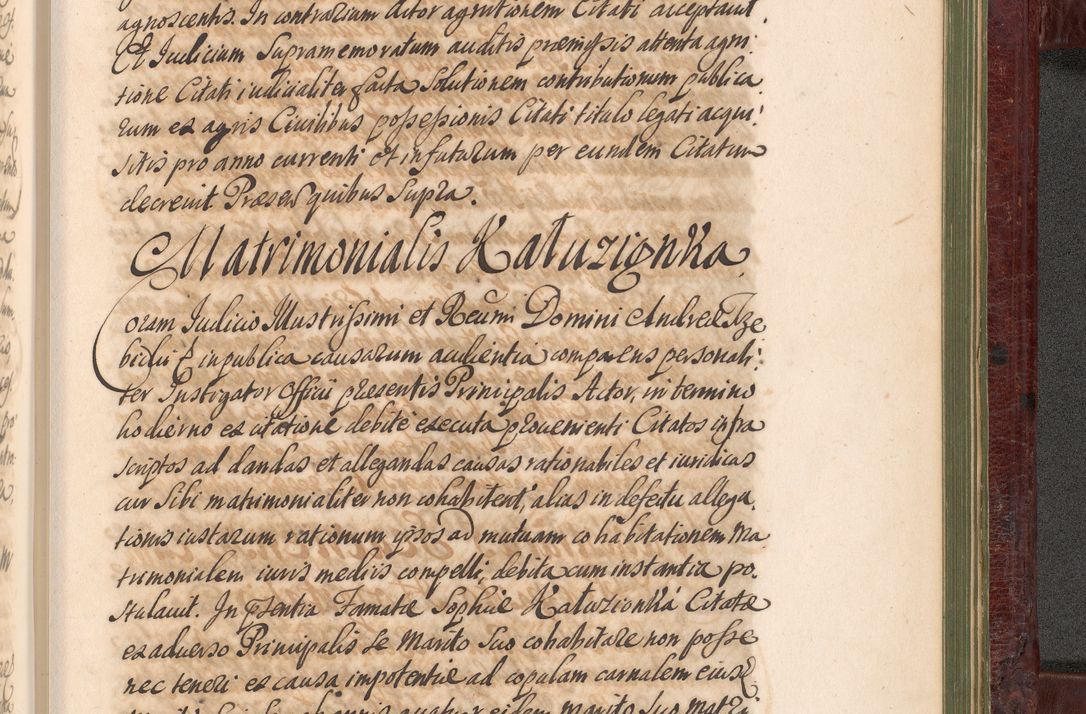 agnoscentis. In contrarium Actor agnitionem Citati acceptavit.
Et Iudicium Supramemoratum auditis præmissis attenta agni:
tione Citati iudicialiter facta Solutionem contributionum publica
rum ex agris Civilibus possessionis Citati titulo legati acqui:
sitis pro anno currenti et infuturum per eundem Citatum
decrevit Præsen quibus Supra.
Matrimonialis Kałuzionka
Coram Iudicio Illustrissimi et Reumi Domini Andreæ Trze
bicki E in publica causarum audientia comparens personali:
ter Instigator Officii præsentis Principalis Actor, in termino
hodierno ex citatione debite executa provenienti Citatos infra
scriptos ad dandas et allegandas causas rationabiles et iuridicas
cur Sibi matrimonialiter non cohabitent, alias in defectu allega
tionis iustarum rationum ipsos ad mutuam cohabitationem Ma
trimonialem iuris mediis compelli, debita cum instantia po:
stulavit. In psentia Famatæ Sophiæ Kałuzionka Citatæ
ex adverso Principalis Se Marito Suo cohabitare non posse
nec teneri ex causa impotentiæ ad copulam carnalem eiusd
quatuor eidem Marito Suo Matri